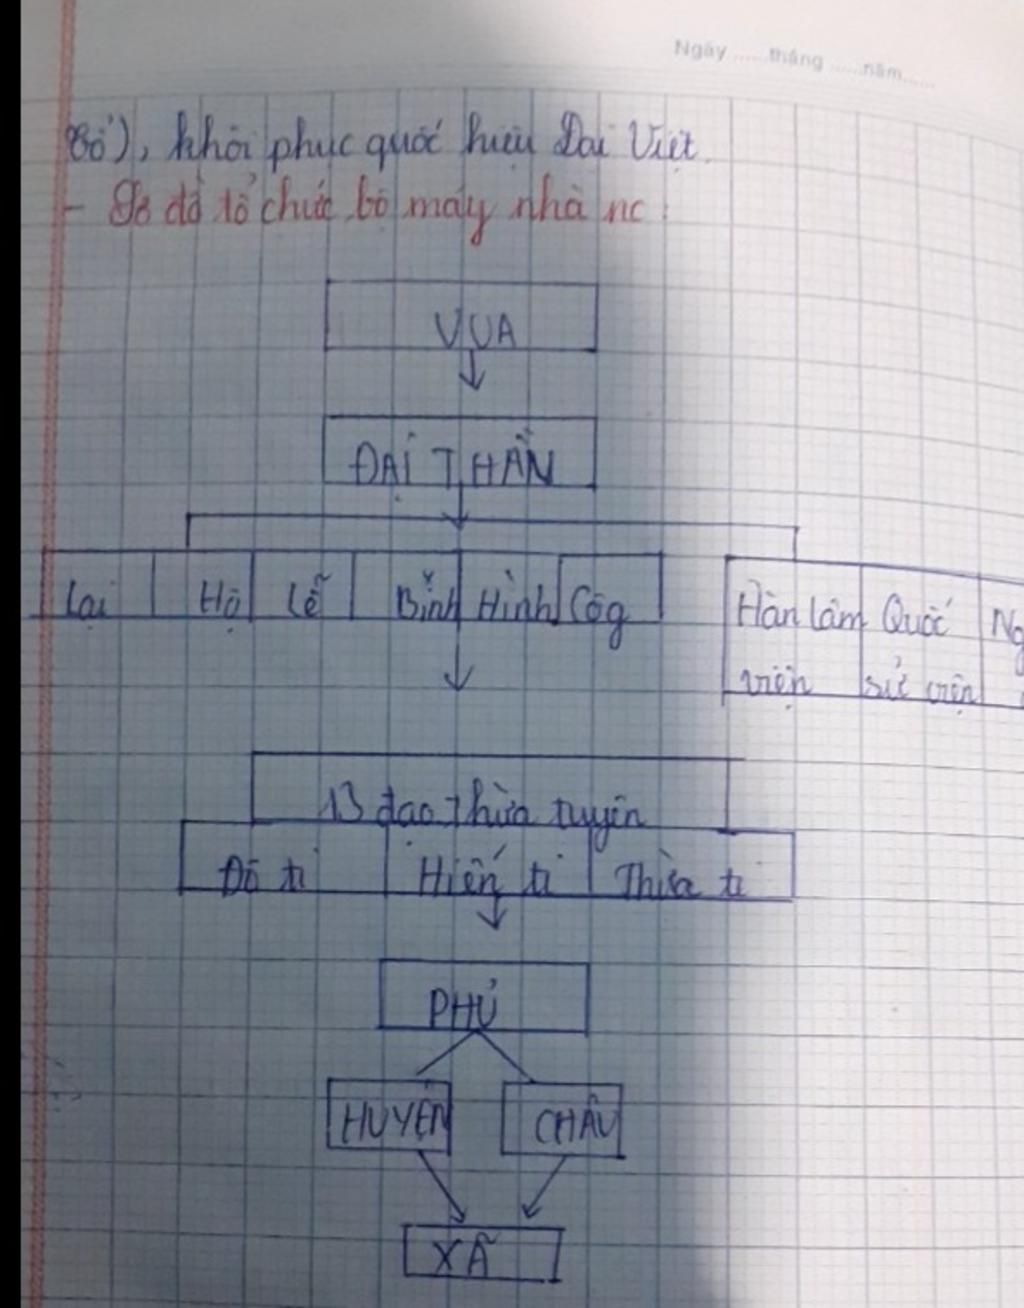 Ngày ...... tháng ...... năm ......
Bồ'), khôi phục quốc hiệu Đại Việt.
- Sơ đồ tổ chức bộ máy nhà nc:
VUA
ĐẠI THẦN
Lại Hộ Lễ Binh Hình Côg Hàn lâm viện Quốc sử viện
13 đạo Thừa tuyên
Đô ti Hiến ti Thừa ti
PHỦ
HUYỆN CHÂU
XÃ